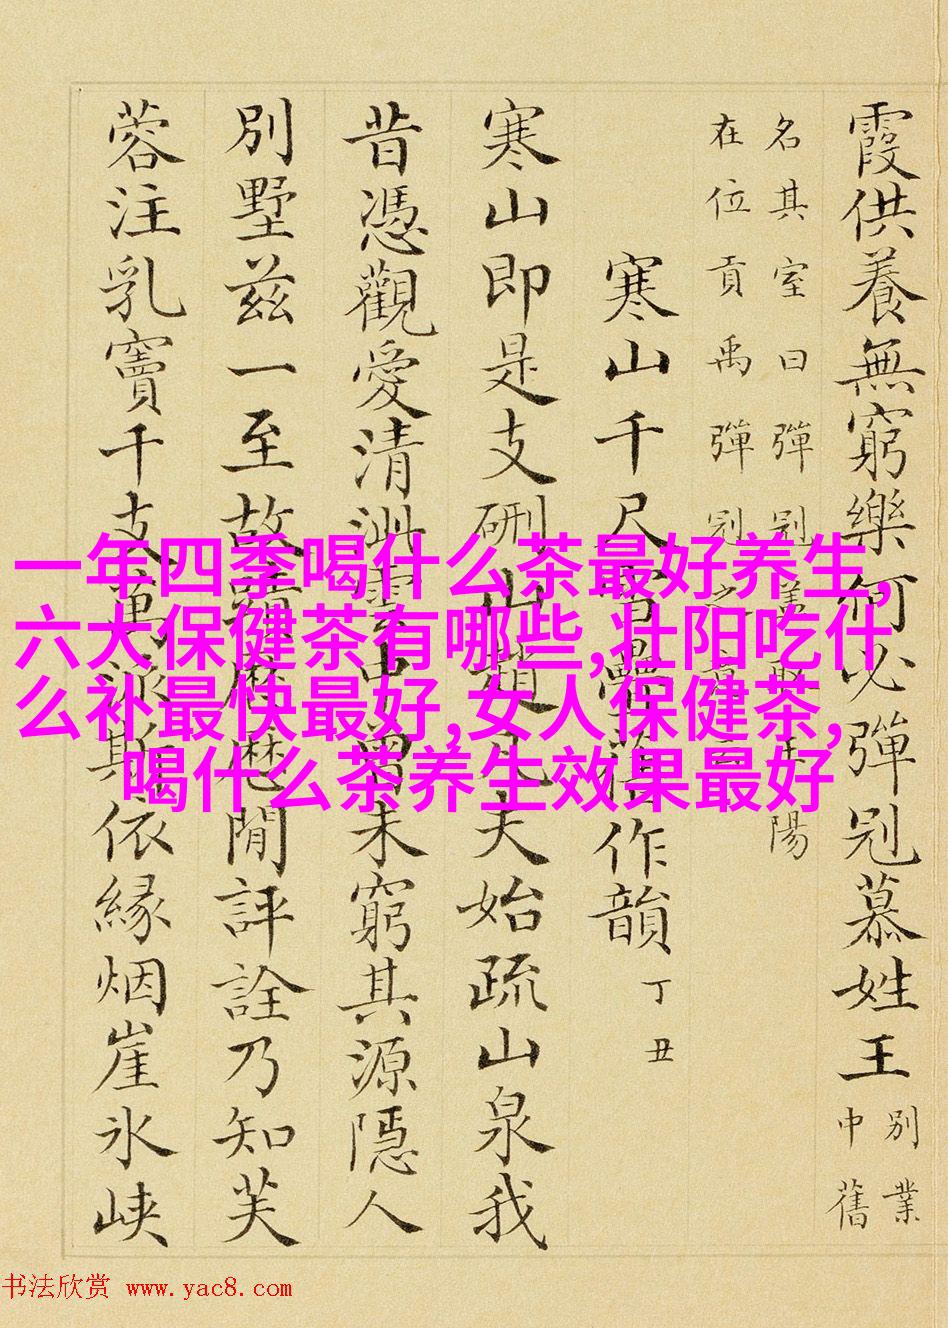 霞供養無窮樂何必彈冠慕姓王
別業
中舊
名其室曰彈冠蓋取王陽
在位貢禹彈冠之意
寒山千尺雪疊舊作韻
丁丑
寒山即是支硎山趙凡夫始疏山泉我
昔憑觀愛清泚雲中曾未窮其源隱人
別墅茲一至故蹟歷歷閒評詮乃知芙
蓉注乳竇千支萬派斯依緣烟崖氷峽
一年四季喝什么茶最好养生,
六大保健茶有哪些,壮阳吃什
么补最快最好,女人保健茶,
喝什么茶养生效果最好
书法欣赏 www.yac8.com